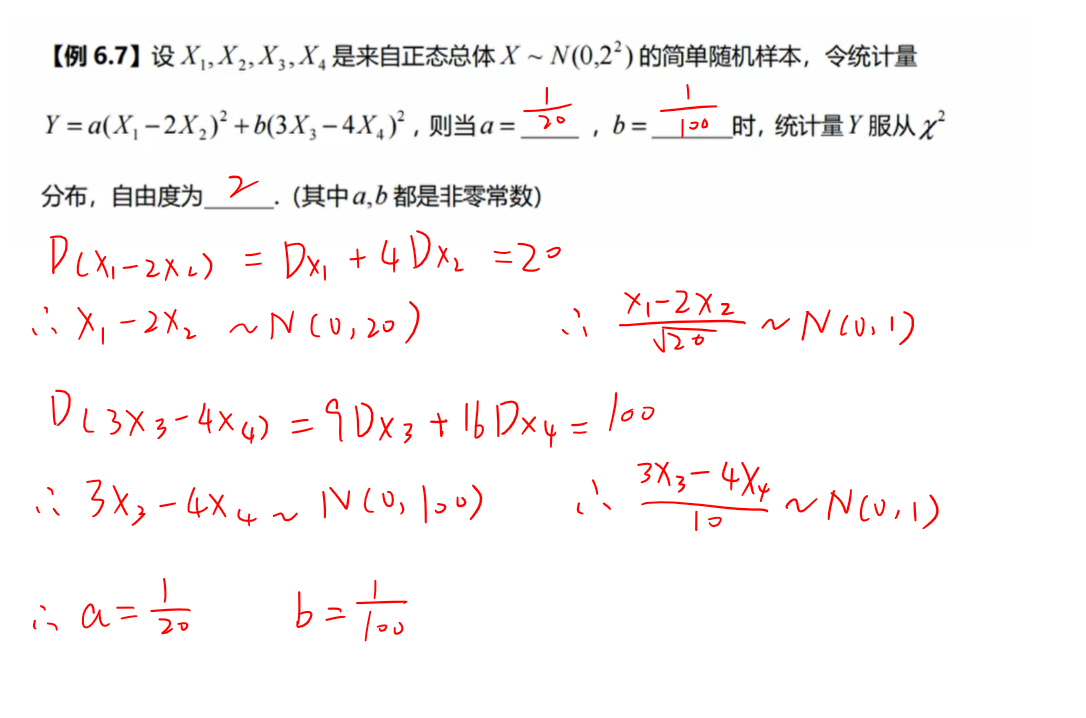 【例 6.7】设 X₁, X₂, X₃, X₄ 是来自正态总体 X ~ N(0,2²) 的简单随机样本，令统计量
Y = a(X₁ − 2X₂)² + b(3X₃ − 4X₄)²，则当 a = 1/20，b = 1/100 时，统计量 Y 服从 χ²
分布，自由度为 2．(其中 a,b 都是非零常数)
D(X₁−2X₂) = DX₁ + 4DX₂ = 20
∴ X₁ − 2X₂ ~ N(0,20) ∴ (X₁−2X₂)/√20 ~ N(0,1)
D(3X₃−4X₄) = 9DX₃ + 16DX₄ = 100
∴ 3X₃ − 4X₄ ~ N(0,100) ∴ (3X₃−4X₄)/10 ~ N(0,1)
∴ a = 1/20 b = 1/100